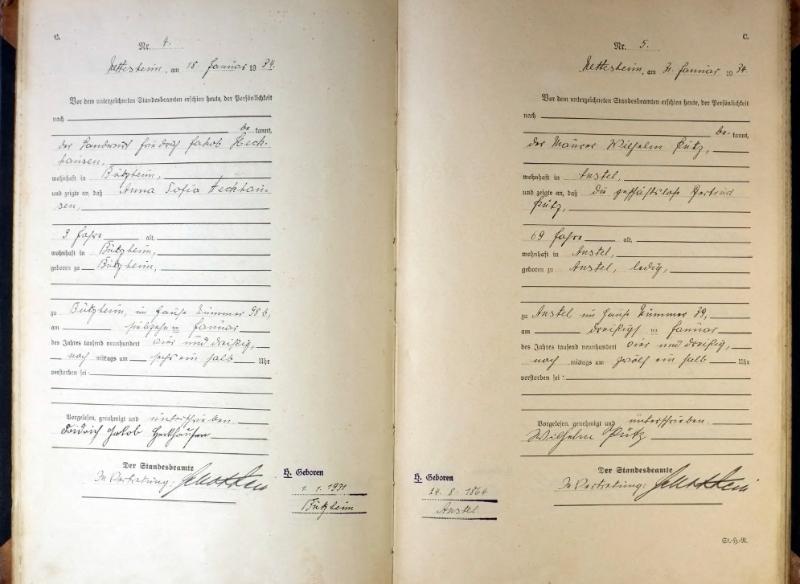 C.
Nr. 4.
Nettesheim, am 18 Januar 19 34.
Vor dem unterzeichneten Standesbeamten erschien heute, der Persönlichkeit
nach
be kannt,
der Landwirt Friedrich Jakob Heck-
hausen,
wohnhaft in Bützheim,
und zeigte an, daß Anna Sofia Heckhau-
sen,
3 Jahre alt,
wohnhaft in Bützheim,
geboren zu Bützheim,
zu Bützheim, im Hause Nummer
am Januar
des Jahres tausend neunhundert vier und dreißig,
nach mittags um sechs ein halb Uhr
verstorben sei:
Vorgelesen, genehmigt und unterschrieben.
Friedrich Jakob Heckhausen
Der Standesbeamte
In Vertretung:
H. Geboren
1. 1. 1931
Bützheim
C.
Nr. 5.
Nettesheim, am 31. Januar 19 34.
Vor dem unterzeichneten Standesbeamten erschien heute, der Persönlichkeit
nach
be kannt,
der Maurer Wilhelm Pütz,
wohnhaft in Anstel,
und zeigte an, daß die geschäftslose Gertrud
Pütz,
69 Jahre alt,
wohnhaft in Anstel,
geboren zu Anstel, ledig,
zu Anstel im Hause Nummer 79,
am dreißigsten Januar
des Jahres tausend neunhundert vier und dreißig,
nach mittags um zwölf ein halb Uhr
verstorben sei:
Vorgelesen, genehmigt und unterschrieben.
Wilhelm Pütz
Der Standesbeamte
In Vertretung:
H. Geboren
14. 8. 1864
Anstel
St.-H.-R.